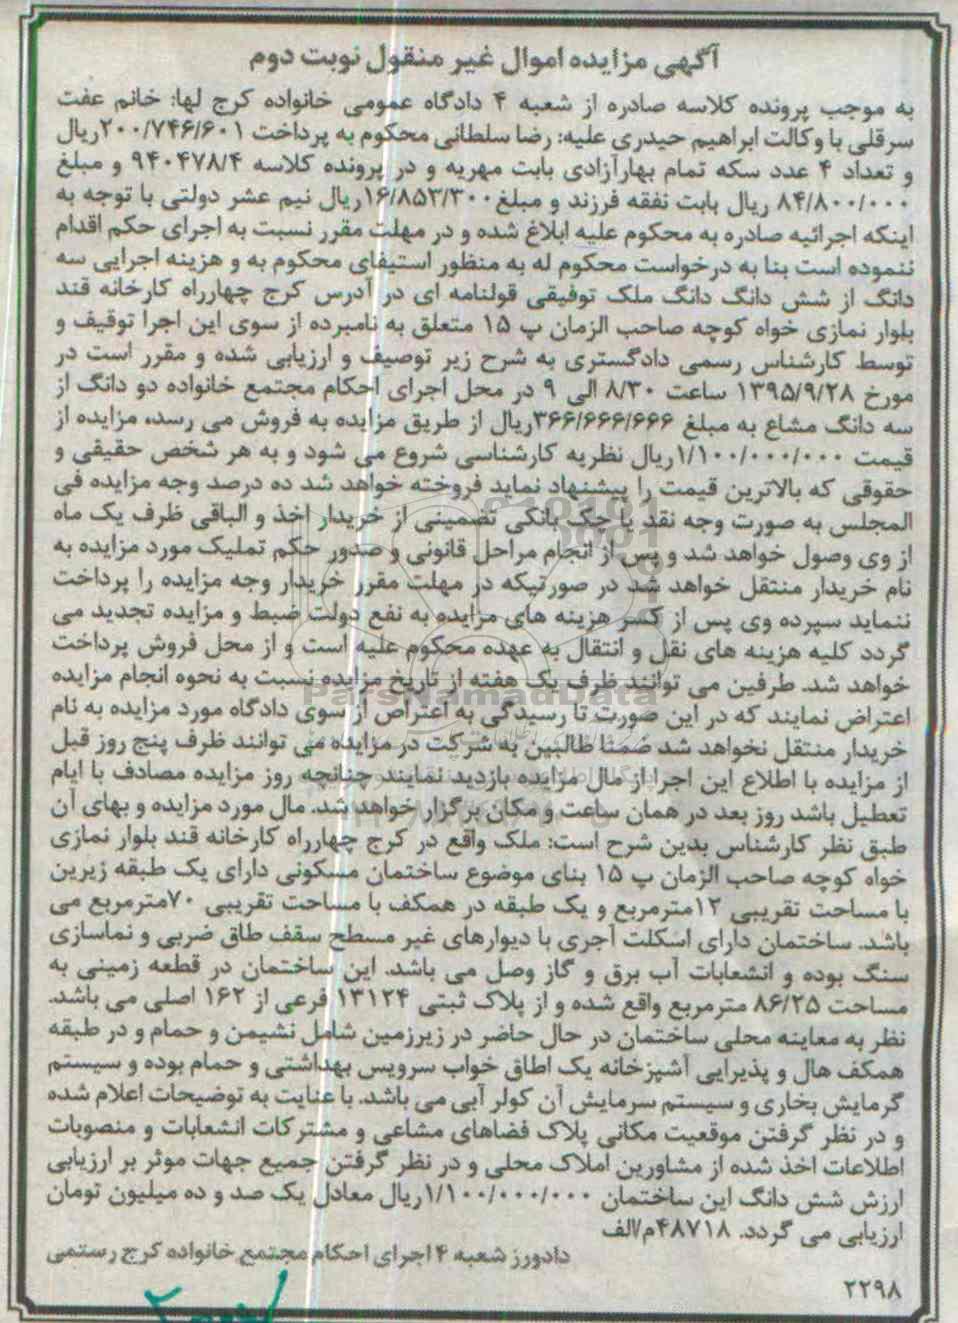 آگهی مزایده اموال غیر منقول نوبت دوم
به موجب پرونده کلاسه صادره از شعبه ۴ دادگاه عمومی خانواده کرج لها: خانم عفت
سرقلی با وکالت ابراهیم حیدری علیه: رضا سلطانی محکوم به پرداخت ۲۰۰/۷۴۶/۶۰۱ریال
و تعداد ۴ عدد سکه تمام بهارآزادی بابت مهریه و در پرونده کلاسه ۹۴۰۴۷۸/۴ و مبلغ
۸۴/۸۰۰/۰۰۰ ریال بابت نفقه فرزند و مبلغ ۱۶/۸۵۳/۳۰۰ریال نیم عشر دولتی با توجه به
اینکه اجرائیه صادره به محکوم علیه ابلاغ شده و در مهلت مقرر نسبت به اجرای حکم اقدام
ننموده است بنا به درخواست محکوم له به منظور استیفای محکوم به و هزینه اجرایی سه
دانگ از شش دانگ دانگ ملک توفیقی قولنامه ای در آدرس کرج چهارراه کارخانه قند
بلوار نمازی خواه کوچه صاحب الزمان پ ۱۵ متعلق به نامبرده از سوی این اجرا توقیف و
توسط کارشناس رسمی دادگستری به شرح زیر توصیف و ارزیابی شده و مقرر است در
مورخ ۱۳۹۵/۹/۲۸ ساعت ۸/۳۰ الی ۹ در محل اجرای احکام مجتمع خانواده دو دانگ از
سه دانگ مشاع به مبلغ ۳۶۶/۶۶۶/۶۶۶ریال از طریق مزایده به فروش می رسد، مزایده از
قیمت ۱/۱۰۰/۰۰۰/۰۰۰ریال نظریه کارشناسی شروع می شود و به هر شخص حقیقی و
حقوقی که بالاترین قیمت را پیشنهاد نماید فروخته خواهد شد ده درصد وجه مزایده فی
المجلس به صورت وجه نقد یا چک بانکی تضمینی از خریدار اخذ و الباقی ظرف یک ماه
از وی وصول خواهد شد و پس از انجام مراحل قانونی و صدور حکم تملیک مورد مزایده به
نام خریدار منتقل خواهد شد در صورتیکه در مهلت مقرر خریدار وجه مزایده را پرداخت
ننماید سپرده وی پس از کسر هزینه های مزایده به نفع دولت ضبط و مزایده تجدید می
گردد کلیه هزینه های نقل و انتقال به عهده محکوم علیه است و از محل فروش پرداخت
خواهد شد. طرفین می توانند ظرف یک هفته از تاریخ مزایده نسبت به نحوه انجام مزایده
ParsNamadData
اعتراض نمایند که در این صورت تا رسیدگی به اعتراض از سوی دادگاه مورد مزایده به نام
خریدار منتقل نخواهد شد ضمنا طالبین به شرکت در مزایده می توانند ظرف پنج روز قبل
از مزایده با اطلاع این اجرا از مال مزایده بازدید نمایند چنانچه روز مزایده مصادف با ایام
تعطیل باشد روز بعد در همان ساعت و مکان برگزار خواهد شد. مال مورد مزایده و بهای آن
طبق نظر کارشناس بدین شرح است: ملک واقع در کرج چهارراه کارخانه قند بلوار نمازی
خواه کوچه صاحب الزمان پ ۱۵ بنای موضوع ساختمان مسکونی دارای یک طبقه زیرین
با مساحت تقریبی ۱۲مترمربع و یک طبقه در همکف با مساحت تقریبی ۷۰مترمربع می
باشد. ساختمان دارای اسکلت آجری با دیوارهای غیر مسطح سقف طاق ضربی و نماسازی
سنگ بوده و انشعابات آب برق و گاز وصل می باشد. این ساختمان در قطعه زمینی به
مساحت ۸۶/۲۵ مترمربع واقع شده و از پلاک ثبتی ۱۳۱۲۴ فرعی از ۱۶۲ اصلی می باشد.
نظر به معاینه محلی ساختمان در حال حاضر در زیرزمین شامل نشیمن و حمام و در طبقه
همکف هال و پذیرایی آشپزخانه یک اطاق خواب سرویس بهداشتی و حمام بوده و سیستم
گرمایش بخاری و سیستم سرمایش آن کولر آبی می باشد. با عنایت به توضیحات اعلام شده
و در نظر گرفتن موقعیت مکانی پلاک فضاهای مشاعی و مشترکات انشعابات و منصوبات
اطلاعات اخذ شده از مشاورین املاک محلی و در نظر گرفتن جمیع جهات موثر بر ارزیابی
ارزش شش دانگ این ساختمان ۱/۱۰۰/۰۰۰/۰۰۰ریال معادل یک صد و ده میلیون تومان
ارزیابی می گردد. ۴۸۷۱۸م/الف
دادورز شعبه ۴ اجرای احکام مجتمع خانواده کرج رستمی
۲۲۹۸